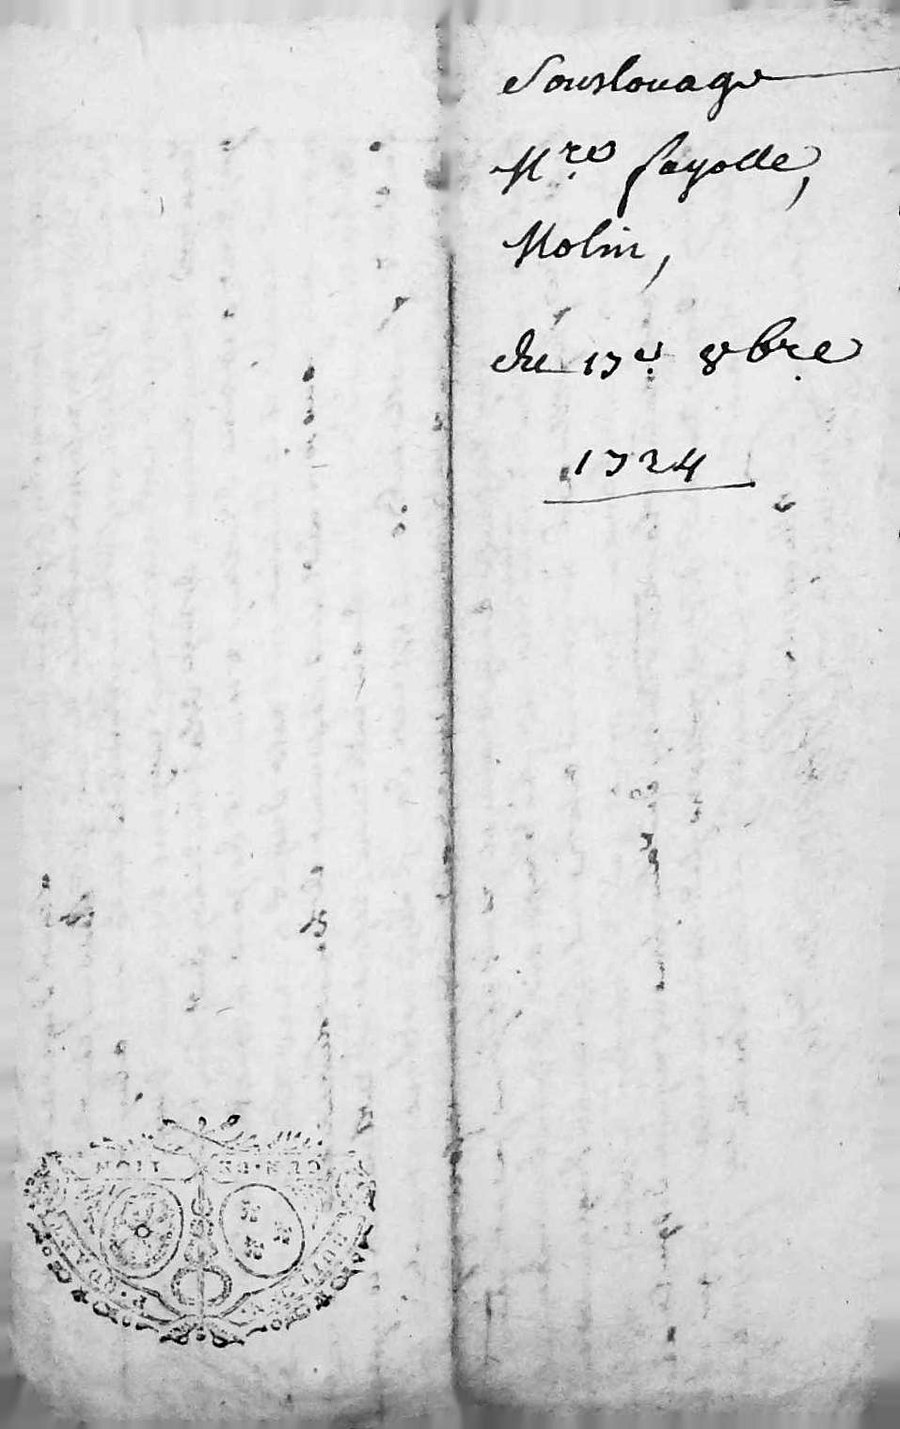 Souslouage
Mres fayolle,
Molin,
du 17e 8bre
1724